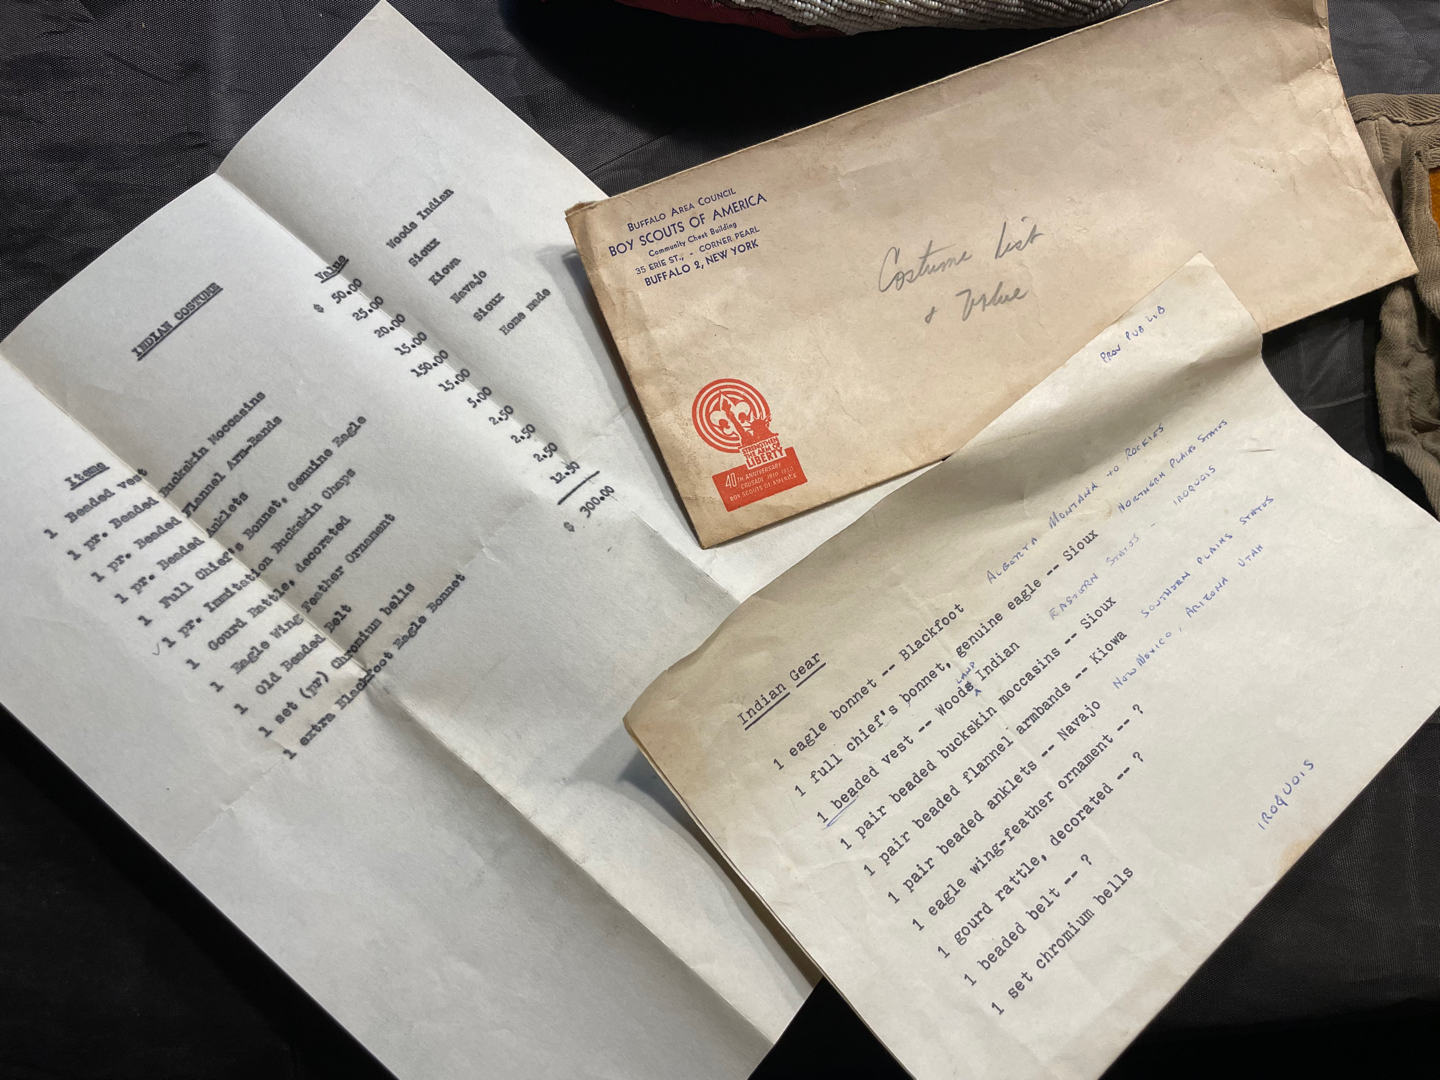 INDIAN COSTUME
Items Value
1 Beaded vest $ 50.00 Woods Indian
1 pr. Beaded Buckskin Moccasins 25.00 Sioux
1 pr. Beaded Flannel Arm-Bands 20.00 Kiowa
1 pr. Beaded Anklets 15.00 Navajo
1 Full Chief's Bonnet, Genuine Eagle 150.00 Sioux
✓ 1 pr. Imitation Buckskin Chaps 15.00 Home made
1 Gourd Rattle, decorated 5.00
1 Eagle Wing Feather Ornament 2.50
1 Old Beaded Belt 2.50
1 set (pr) Chromium bells 2.50
1 extra Blackfoot Eagle Bonnet 12.50
$ 300.00
BUFFALO AREA COUNCIL
BOY SCOUTS OF AMERICA
Community Chest Building
35 ERIE ST., - CORNER PEARL
BUFFALO 2, NEW YORK
Costume list
+ Value
STRENGTHEN
THE ARM OF
LIBERTY
40TH ANNIVERSARY
CRUSADE 1950
BOY SCOUTS OF AMERICA
PROV PUB LIB
Indian Gear
1 eagle bonnet -- Blackfoot ALBERTA MONTANA TO ROCKIES
1 full chief's bonnet, genuine eagle -- Sioux NORTHERN PLAINS STATES
1 beaded vest -- Woods LAND Indian EASTERN STATES - IROQUOIS
1 pair beaded buckskin moccasins -- Sioux
1 pair beaded flannel armbands -- Kiowa SOUTHERN PLAINS STATES
1 pair beaded anklets -- Navajo NEW MEXICO, ARIZONA UTAH
1 eagle wing-feather ornament -- ?
1 gourd rattle, decorated -- ?
1 beaded belt -- ?
1 set chromium bells
IROQUOIS